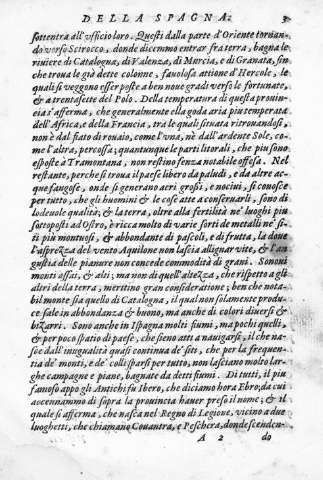 DELLA SPAGNA. 3
sottentra all'ufficio loro. Questi dalla parte d'Oriente torcian-
do verso Scirocco, donde dicemmo entrar fra terra, bagna le
riuiere di Catalogna, di Valenza, di Murcia, e di Granata, fin
che troua le già dette colonne, fauolosa attione d'Hercole, le
quali si veggono esser poste a ben noue gradi verso le fortunate,
& a trentasette del Polo. Della temperatura di questa prouin-
cia s'afferma, che generalmente ella goda aria piu temperata
dell'Africa, e della Francia, tra le quali situata ritrouandosi,
non è dal fiato di rouaio, come l'vna, nè dall'ardente Sole, co-
me l'altra, percossa; quantunque le parti litorali, che piu sono
esposte à Tramontana, non restino senza notabile offesa. Nel
restante, perche si troua il paese libero da paludi, e da altre ac-
que fangose, onde si generano aeri grossi, e nociui, si conosce
per tutto, che gli huomini & le cose atte a conseruarli, sono di
lodeuole qualità; & la terra, oltre alla fertilità ne' luoghi piu
sottoposti ad Ostro, è ricca molto di varie sorti de metalli ne' si-
ti piu montuosi, & abbondante di pascoli, e di frutta, la doue
l'asprezza del vento Aquilone non lascia allignar vite, & l'an-
gustia delle pianure non concede commodità di grani. Sonoui
monti assai, & alti, ma non di quell'altezza, che rispetto a gli
altri della terra, meritino gran consideratione; ben che nota-
bil monte sia quello di Catalogna, il qual non solamente produ-
ce sale in abbondanza & buono, ma anche di colori diuersi &
bizarri. Sono anche in Ispagna molti fiumi, ma pochi quelli,
& per poco spatio di paese, che sieno atti a nauigarsi, il che na-
sce dall'inugualità quasi continua de' siti, che per la frequen-
tia de' monti, e de' colli sparsi per tutto, non lasciano molto lar-
ghe campagne e piane, bagnate da detti fiumi. Di tutti, il piu
famoso appo gli Antichi fu Ibero, che diciamo hora Ebro, da cui
accennammo di sopra la prouincia hauer preso il nome; & il
quale si afferma, che nasca nel Regno di Legione, vicino a due
luoghetti, che chiamano Couantra, e Peschera, donde scenden-
A 2 do